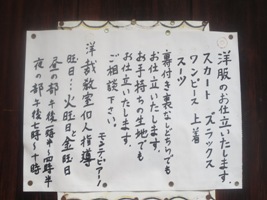 洋服のお仕立いたします
スカート スラックス
ワンピース 上着
スーツ
裏付き裏なしどちらでも
お仕立いたします。
お手持ちの生地でも
お仕立いたします。
ご相談下さい。
モンテ・ビアノ
洋裁教室 個人指導
旺日…火旺日と金旺日
昼の部 午後一時半〜四時半
夜の部 午後七時〜十時